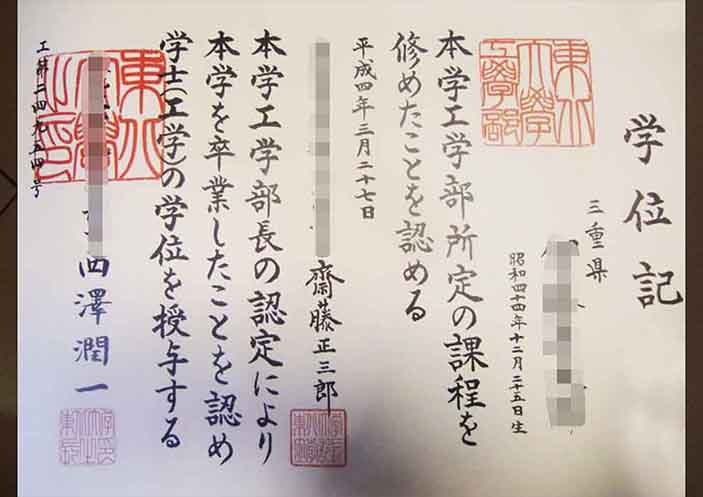 学位記
三重県
昭和四十四年十二月二十五日生
東北大學工學部
本学工学部所定の課程を
修めたことを認める
平成四年三月二十七日
齋藤正三郎
本学工学部長の認定により
本学を卒業したことを認め
学士(工学)の学位を授与する
西澤潤一
工第二四九五四号